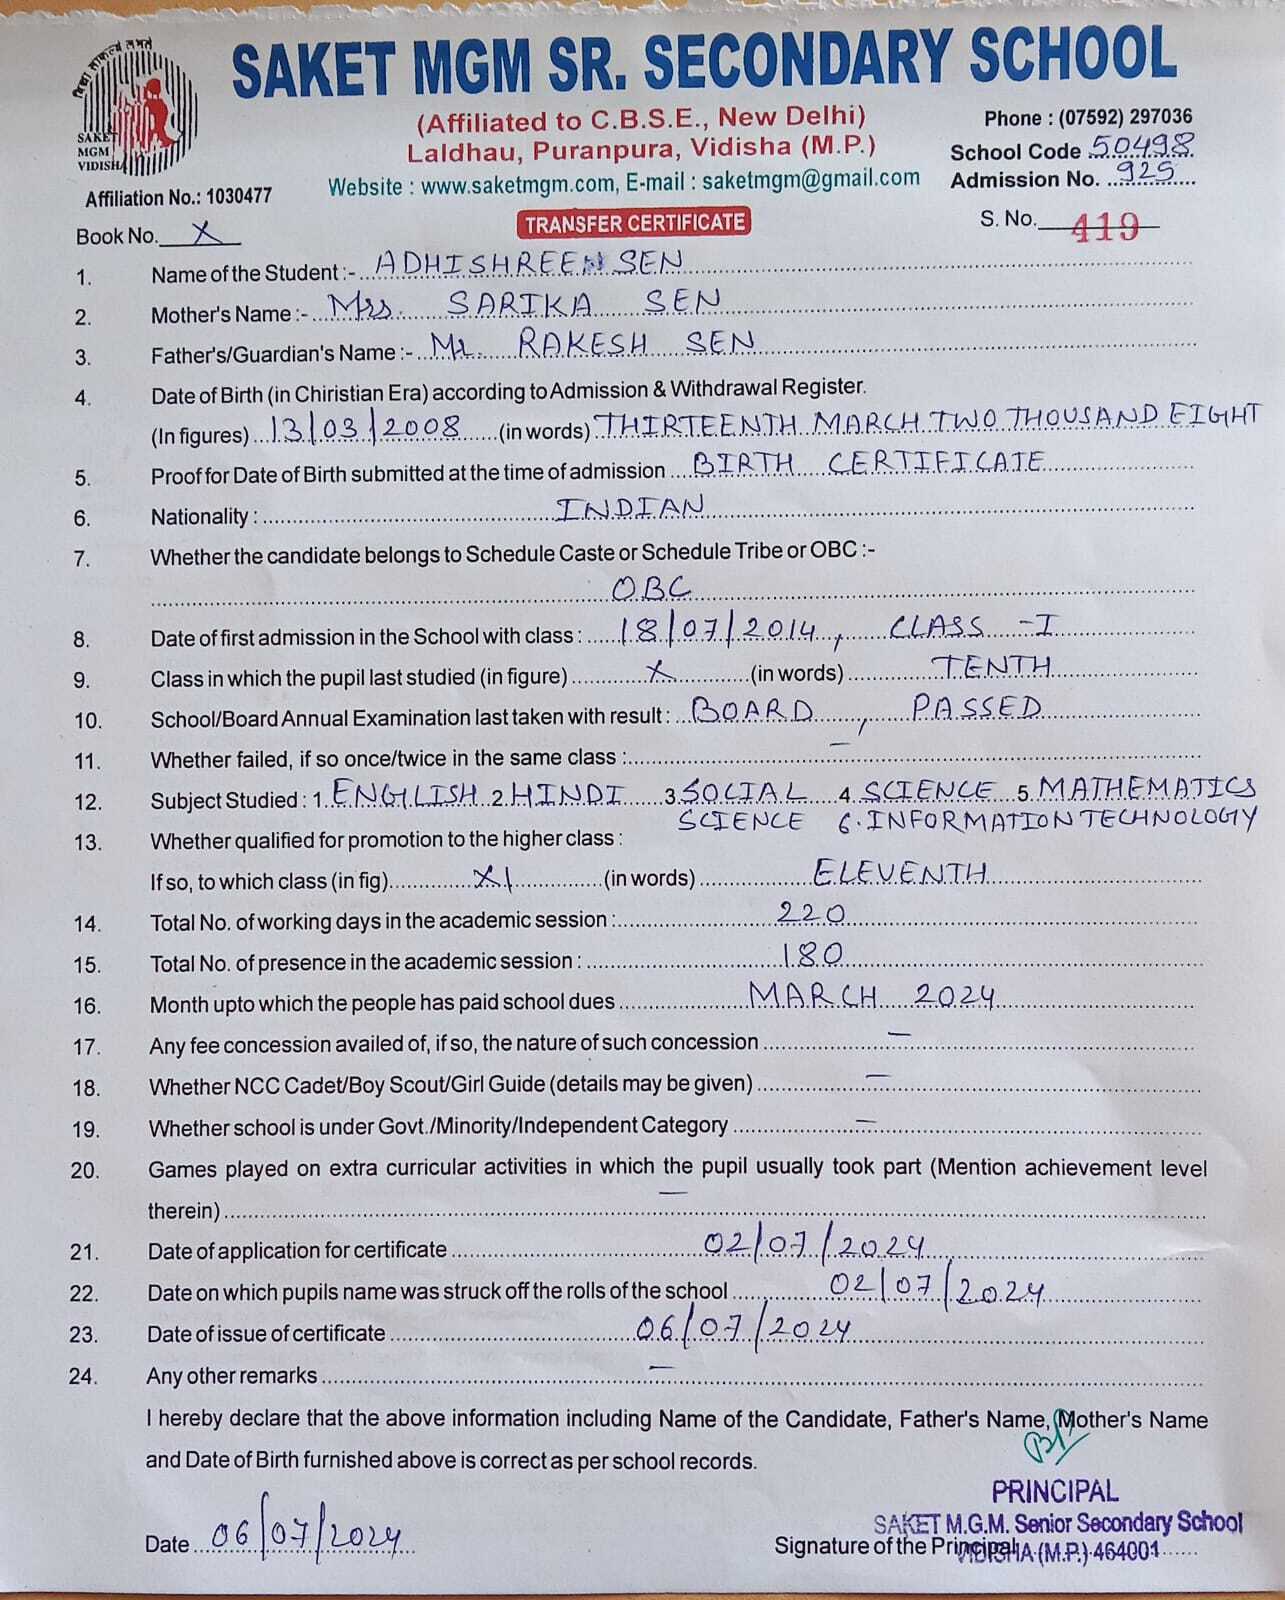 विद्या साफल्यं लभते
SAKET
MGM
VIDISHA
SAKET MGM SR. SECONDARY SCHOOL
(Affiliated to C.B.S.E., New Delhi)
Laldhau, Puranpura, Vidisha (M.P.)
Website : www.saketmgm.com, E-mail : saketmgm@gmail.com
Phone : (07592) 297036
School Code 50498
Admission No. 925
Affiliation No.: 1030477
Book No. X
TRANSFER CERTIFICATE
S. No. 419
1. Name of the Student :- ADHISHREEN SEN
2. Mother's Name :- Mrs. SARIKA SEN
3. Father's/Guardian's Name :- Mr. RAKESH SEN
4. Date of Birth (in Chiristian Era) according to Admission & Withdrawal Register.
(In figures) 13/03/2008 (in words) THIRTEENTH MARCH TWO THOUSAND EIGHT
5. Proof for Date of Birth submitted at the time of admission BIRTH CERTIFICATE
6. Nationality : INDIAN
7. Whether the candidate belongs to Schedule Caste or Schedule Tribe or OBC :-
OBC
8. Date of first admission in the School with class : 18/07/2014, CLASS - I
9. Class in which the pupil last studied (in figure) X (in words) TENTH
10. School/Board Annual Examination last taken with result : BOARD, PASSED
11. Whether failed, if so once/twice in the same class : —
12. Subject Studied : 1. ENGLISH 2. HINDI 3. SOCIAL 4. SCIENCE 5. MATHEMATICS
SCIENCE 6. INFORMATION TECHNOLOGY
13. Whether qualified for promotion to the higher class :
If so, to which class (in fig) XI (in words) ELEVENTH
14. Total No. of working days in the academic session : 220
15. Total No. of presence in the academic session : 180
16. Month upto which the people has paid school dues MARCH 2024
17. Any fee concession availed of, if so, the nature of such concession —
18. Whether NCC Cadet/Boy Scout/Girl Guide (details may be given) —
19. Whether school is under Govt./Minority/Independent Category —
20. Games played on extra curricular activities in which the pupil usually took part (Mention achievement level
therein) —
21. Date of application for certificate 02/07/2024
22. Date on which pupils name was struck off the rolls of the school 02/07/2024
23. Date of issue of certificate 06/07/2024
24. Any other remarks —
I hereby declare that the above information including Name of the Candidate, Father's Name, Mother's Name
and Date of Birth furnished above is correct as per school records.
PRINCIPAL
SAKET M.G.M. Senior Secondary School
VIDISHA (M.P.) 464001
Date 06/07/2024
Signature of the Principal